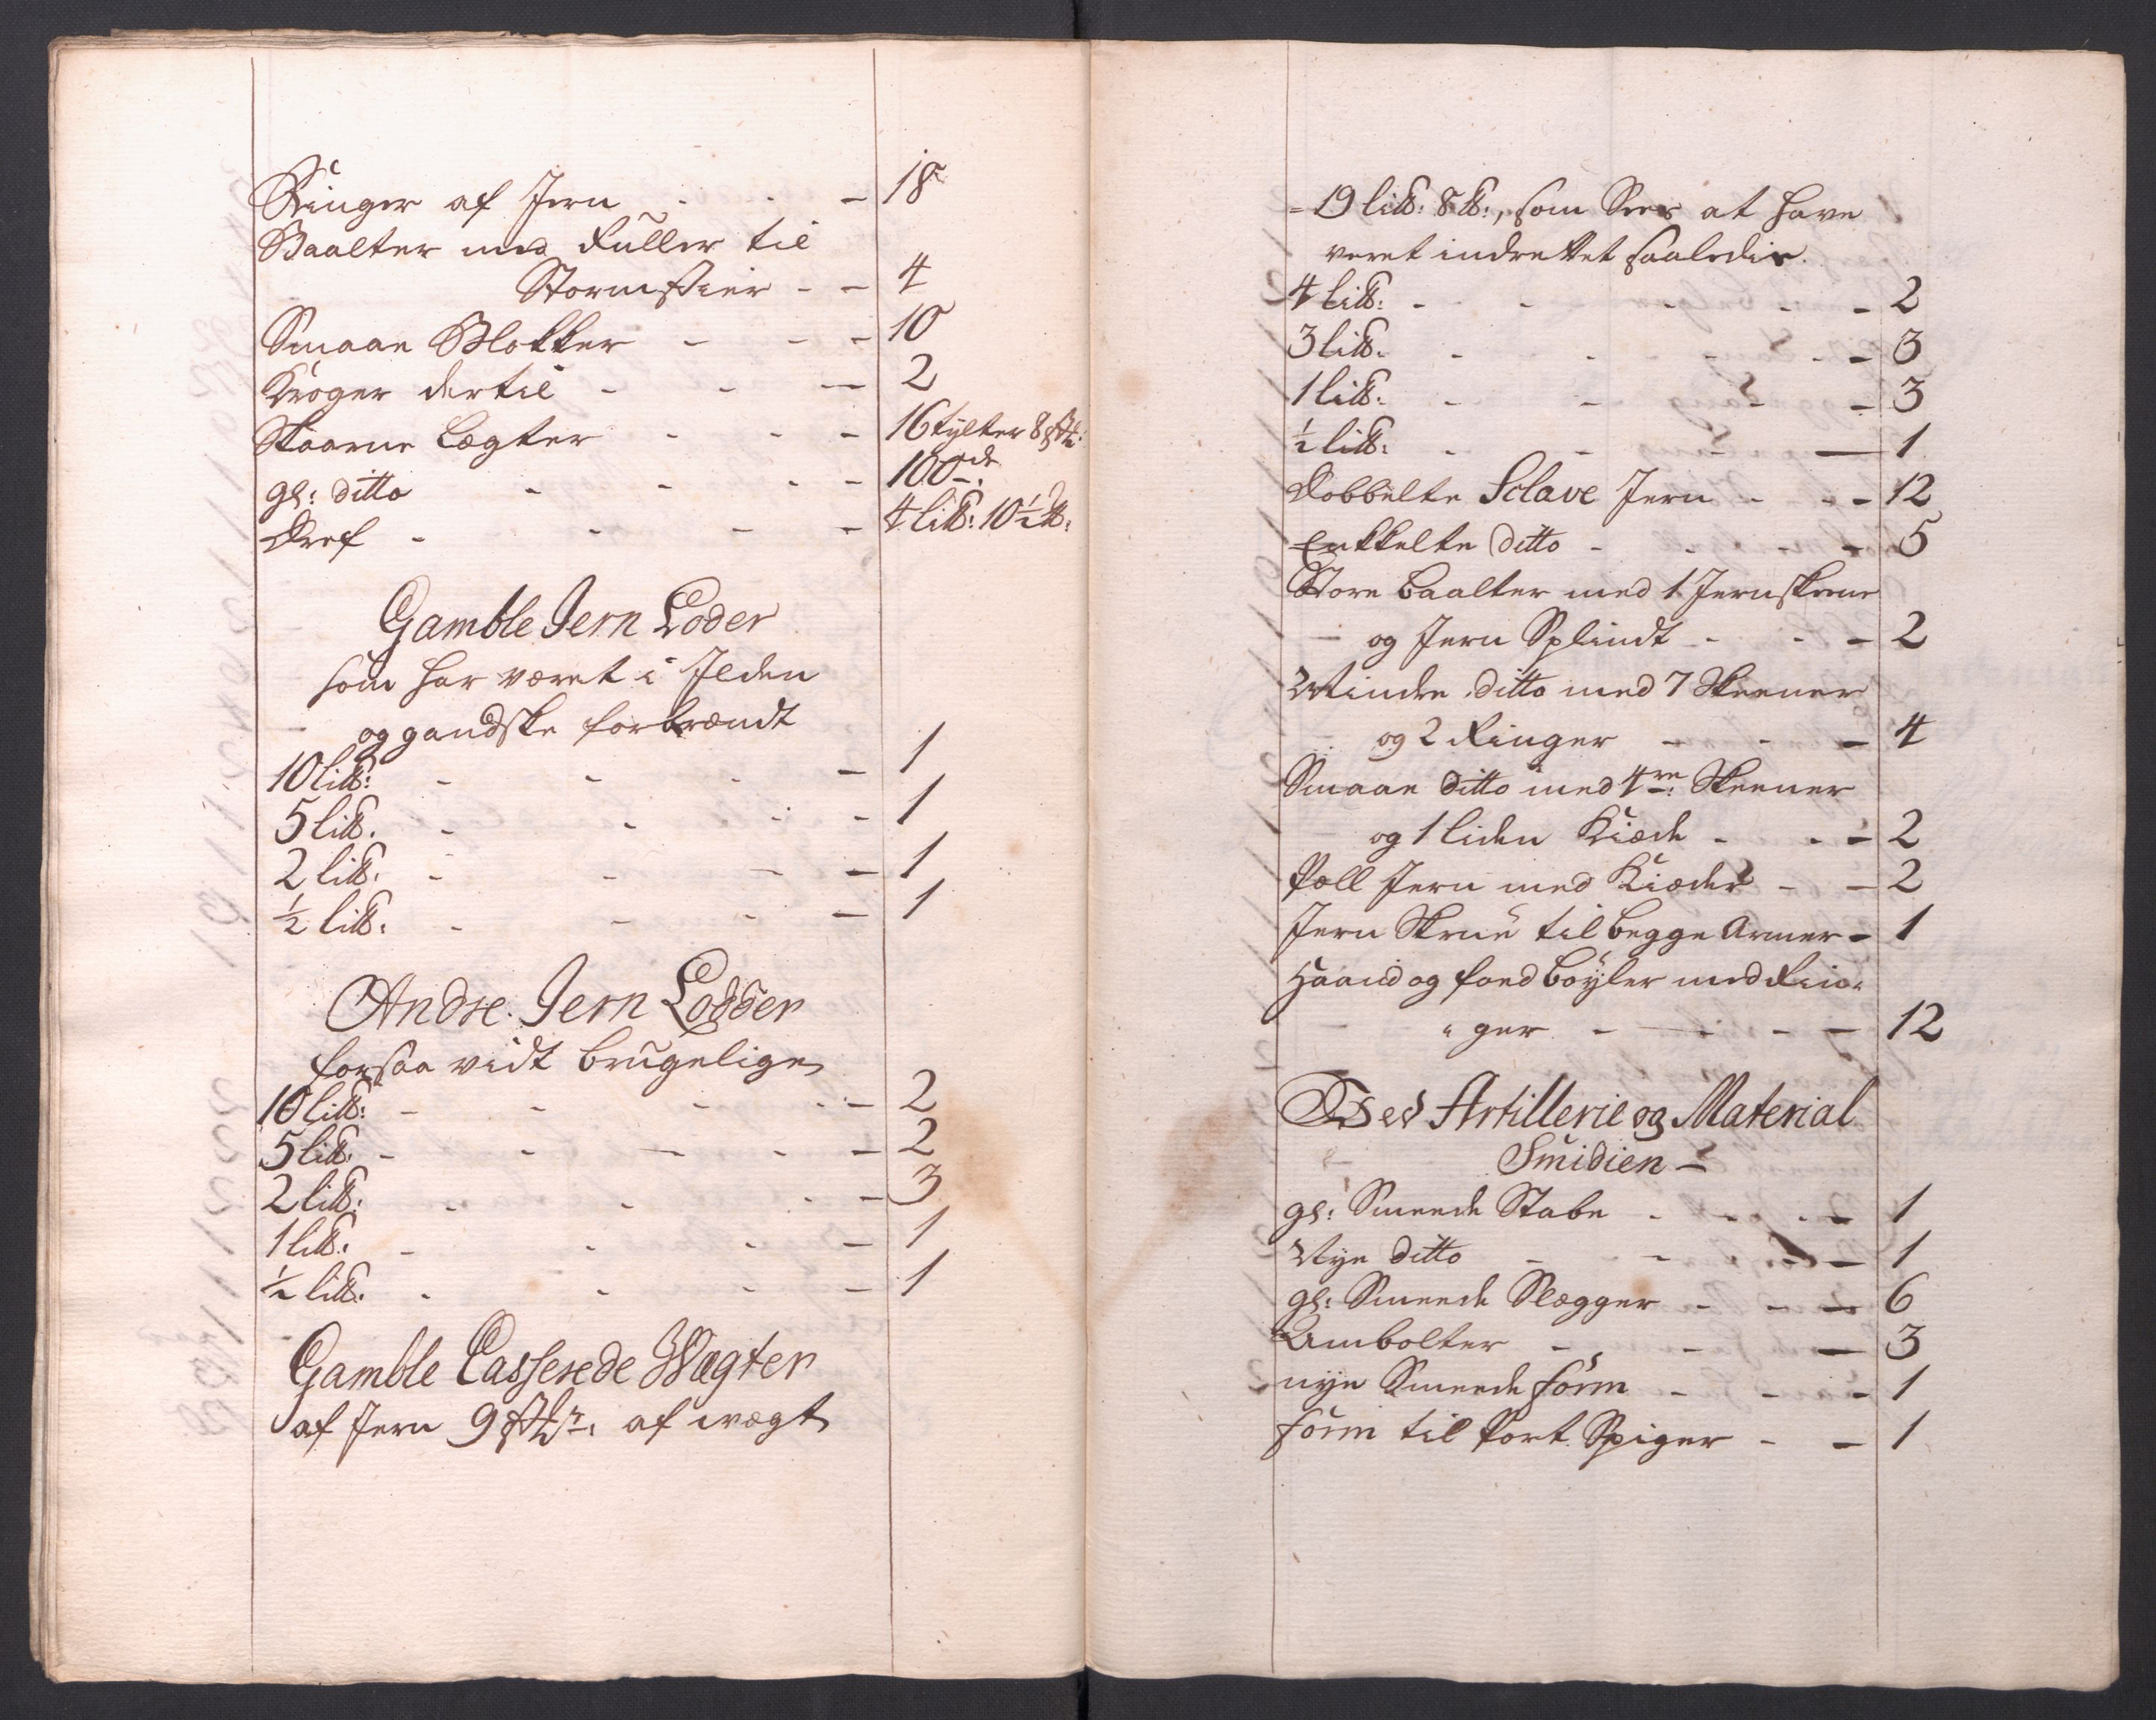 Ringer af Jern - - - 18
Baalter med Ruller til
Stormstier - - 4
Smaae Blokker - - - 10
Kroger dertil - - - 2
Skaarne Lægter - - - 16 tylter 8 st:
gl: ditto - - - - 100de
Dref - - - - 4 lib: 10½ lb:
Gamble Jern Loder
som har været i Ilden
og gandske forbrændt
10 lib: - - - - 1
5 lib. - - - - 1
2 lib. - - - - 1
½ lib: - - - - 1
Andre Jern Lodder
forsaavidt brugelige
10 lib: - - - - 2
5 lib: - - - - 2
2 lib: - - - - 3
1 lib: - - - - 1
½ lib: - - - - 1
Gamble Casserede Wægter
af Jern 9 stkr: af vægt
= 19 lib: 8 lb:, som Sees at have
veret indrettet saaledis.
4 lib: - - - - - 2
3 lib. - - - - - 3
1 lib. - - - - 3
½ lib: - - - - 1
Dobbelte Sclave Jern - - - 12
Enkkelte ditto - - - - 5
Store Baalter med 1 Jernskeene
og Jern Splindt - - - 2
Mindre ditto med 7 Skeener
og 2 Ringer - - - 4
Smaae ditto med 4re: Skeener
og 1 liden Kiæde - - - 2
Poll Jern med Kiæder - - 2
Jern Skrue til begge Armer - 1
Haand og foed Bøyler med Rin-
"ger - - - - 12
Ved Artillerie og Material
Smidien -
gl: Smeede Stabe - - - - 1
Nye ditto - - - - 1
gl: Smeede Slægger - - - 6
Ambolter - - - 3
nye Smeede form - - - 1
form til Port Spiger - - 1